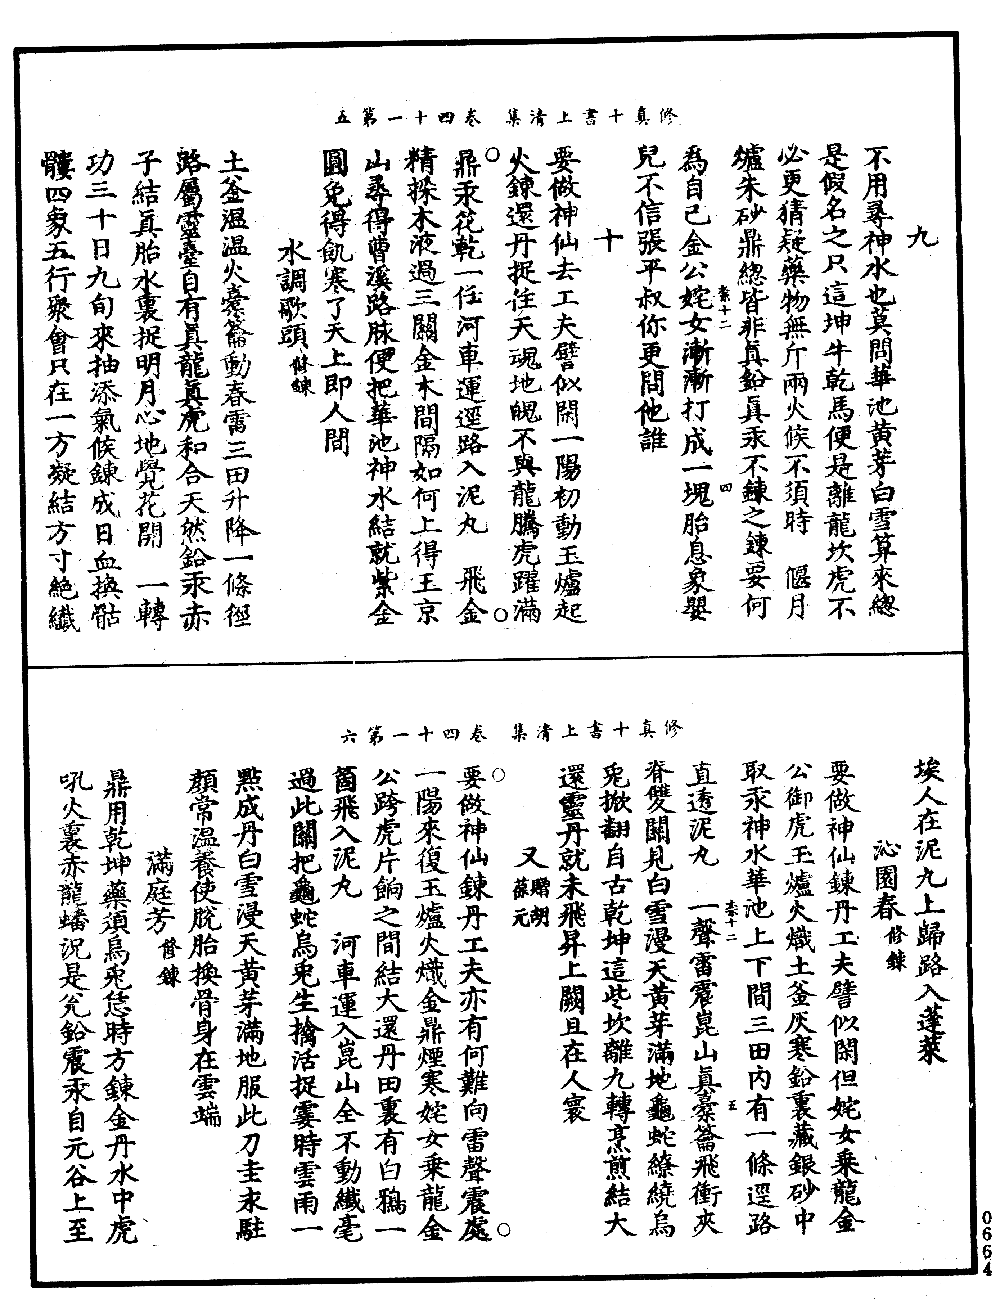 修真十書上清集　卷四十一第五
九
不用尋神水也莫問華池黃芽白雪算來總
是假名之只這坤牛乾馬便是離龍坎虎不
必更猜疑藥物無斤兩火候不須時　偃月
爐朱砂鼎總皆非真鉛真汞不鍊之鍊要何
爲自己金公姹女漸漸打成一塊胎息象嬰
兒不信張平叔你更問他誰
十
要做神仙去工夫譬似閑一陽初動玉爐起
火鍊還丹捉住天魂地魄不與龍騰虎躍滿
鼎汞花乾一任河車運逕路入泥丸　飛金
精採木液過三關金木間隔如何上得玉京
山尋得曹溪路脉便把華池神水結就紫金
圓免得飢寒了天上即人間
水調歌頭修鍊
土釜溫溫火橐籥動春雷三田升降一條徑
路屬靈臺自有真龍真虎和合天然鉛汞赤
子結真胎水裏捉明月心地覺花開　一轉
功三十日九旬來抽添氣候鍊成日血換骷
髏四象五行聚會只在一方凝結方寸絕纖
修真十書上清集　卷四十一第六
埃人在泥丸上歸路入蓬萊
沁園春修鍊
要做神仙鍊丹工夫譬似閑但姹女乘龍金
公御虎玉爐火熾土釜灰寒鉛裏藏銀砂中
取汞神水華池上下間三田內有一條逕路
直透泥丸　一聲雷震崑山真橐籥飛衝夾
脊雙關見白雪漫天黃芽滿地龜蛇繚繞烏
兔掀翻自古乾坤這些坎離九轉烹煎結大
還靈丹就未飛昇上闕且在人寰
又贈胡葆元
要做神仙鍊丹工夫亦有何難向雷聲震處
一陽來復玉爐火熾金鼎煙寒姹女乘龍金
公跨虎片餉之間結大還丹田裏有白鴉一
箇飛入泥丸　河車運入崑山全不動纖毫
過此關把龜蛇烏兔生擒活捉霎時雲雨一
點成丹白雪漫天黃芽滿地服此刀圭永駐
顏常溫養使脫胎換骨身在雲端
滿庭芳修鍊
鼎用乾坤藥須烏兔恁時方鍊金丹水中虎
吼火裏赤龍蟠況是兊鉛震汞自元谷上至
0664